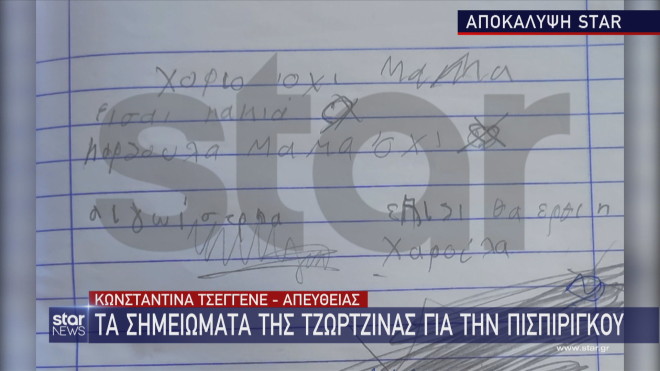 ΑΠΟΚΑΛΥΨΗ STAR
χοριο όχι μαμα
εισαι κακιά
μαμα όχι
θα ερθι η
Χαρούλα
star
ΚΩΝΣΤΑΝΤΙΝΑ ΤΣΕΓΓΕΝΕ - ΑΠΕΥΘΕΙΑΣ
star NEWS
ΤΑ ΣΗΜΕΙΩΜΑΤΑ ΤΗΣ ΤΖΩΡΤΖΙΝΑΣ ΓΙΑ ΤΗΝ ΠΙΣΠΙΡΙΓΚΟΥ
www.star.gr